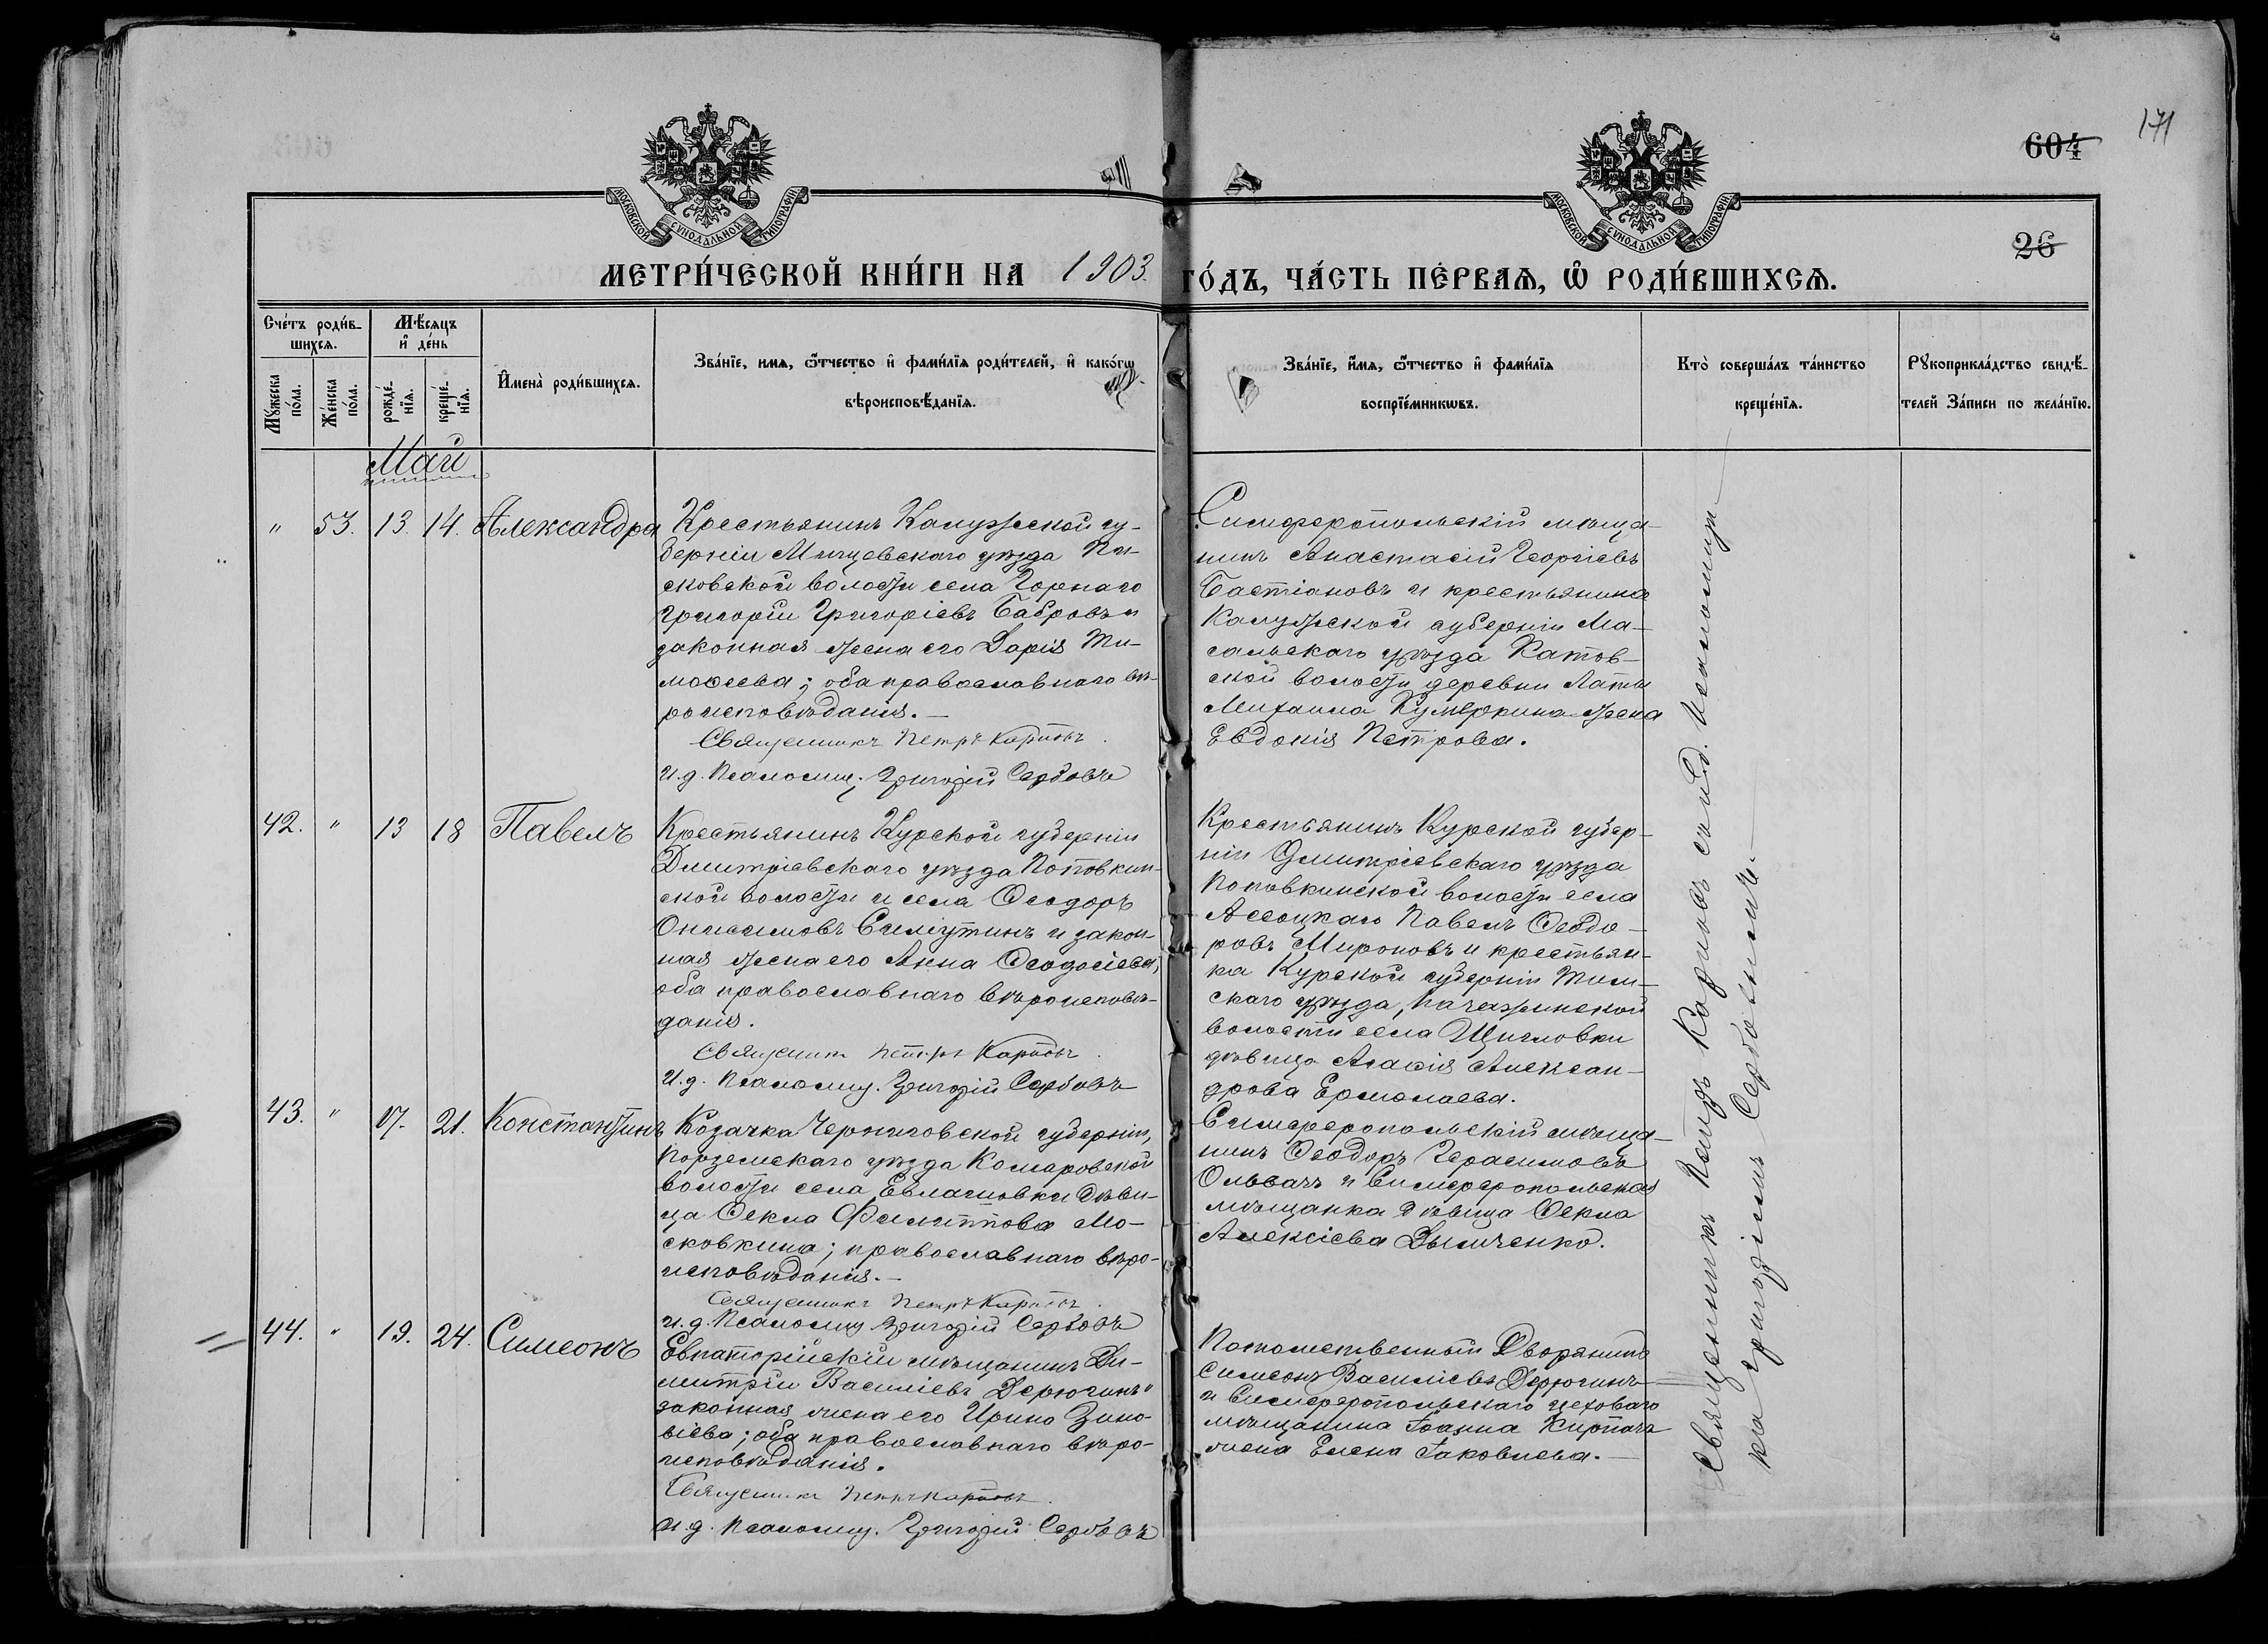 171
604
26
МОСКОВСКОЙ СУНОДАЛЬНОЙ ТИПОГРАФІИ
МОСКОВСКОЙ СУНОДАЛЬНОЙ ТИПОГРАФІИ
МЕТРИ́ЧЕСКОЙ КНИ́ГИ НА 1903. ГО́ДЪ, ЧА́СТЬ ПЕ́РВАѦ, Ѡ РОДИ́ВШИХСѦ.
Сче́тъ роди́в-
шихсѧ.
Мꙋ́жеска по́ла.
Же́нска по́ла.
Мѣ́сѧцъ
и҆ де́нь
рожде́-
нїѧ.
креще́-
нїѧ.
И҆мена̀ роди́вшихсѧ.
Зва́нїе, имѧ, ѻ҆́тчество и҆ фами́лїѧ роди́телей, и҆ како́гѡ
вѣроисповѣ́данїѧ.
Зва́нїе, и҆́мѧ, ѻ҆́тчество и҆ фами́лїѧ
воспрїе́мникѡвъ.
Кто̀ соверша́лъ та́инство
креще́нїѧ.
Рꙋкоприкла́дство свидѣ́-
телей За́писи по жела́нїю.
Май
" 53. 13. 14. Александра
Крестьянинъ Калужской гу-
берніи Мещевскаго уѣзда
сковской волости села Горнаго
Григорій Григоріевъ Бабровъ и
законная жена его Дарія Ти-
моѳеева; оба православнаго вѣ-
роисповѣданія.—
Священникъ Петръ Карповъ.
И.д. Псаломщ. Григорій Сербовъ
Симферопольскій мѣща-
нинъ Анастасій Георгіевъ
Бастіановъ и крестьянина
Калужской губерніи Ма-
сальскаго уѣзда Катов-
ской волости деревни Латы
Михаила жена
Евдокія Петрова.
42. " 13 18 Павелъ
Крестьянинъ Курской губерніи
Дмитріевскаго уѣзда Поповкин-
ской волости и села Ѳеодоръ
Онисимовъ Симутинъ и закон-
ная жена его Анна Ѳеодосіева;
оба православнаго вѣроисповѣ-
данія.
Священникъ Петръ Карповъ.
И.д. Псаломщ. Григорій Сербовъ
Крестьянинъ Курской губер-
ніи Дмитріевскаго уѣзда
Поповкинской волости села
Асоцкаго Павелъ Ѳеодо-
ровъ Мироновъ и крестьян-
ка Курской губерніи Тим-
скаго уѣзда,
волости села Щигловки
дѣвица Агаѳія Алексан-
дрова Ермолаева.
43. " 17. 21. Константинъ
Козачка Черниговской губерніи,
Борзенскаго уѣзда Комаровской
волости села Евлашовки дѣви-
ца Ѳекла Филиппова Мо-
сковкина; православнаго вѣро-
исповѣданія.—
Священникъ Петръ Карповъ.
И.д. Псаломщ. Григорій Сербовъ
Симферопольскій мѣща-
нинъ Ѳеодоръ Герасимовъ
Ольвачъ и Симферопольская
мѣщанка дѣвица Ѳекла
Алексіева Дымченко.
44. " 19. 24. Симеонъ
Евпаторійскій мѣщанинъ Ди-
митрій Василіевъ Дерюгинъ и
законная жена его Ирина Зино-
віева; оба православнаго вѣро-
исповѣданія.
Священникъ Петръ Карповъ.
И.д. Псаломщ. Григорій Сербовъ
Потомственный Дворянинъ
Симеонъ Василіевъ Дерюгинъ
и Симферопольскаго цеховаго
мѣщанина Іоанна Кирпача
жена Елена Іаковлева.—
Священникъ Петръ Карповъ съ и.д. Псаломщи-
ка Григоріемъ Сербовымъ.—